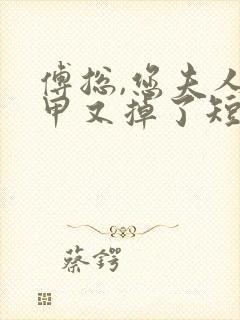 傅总,您夫人
甲又掉了短
蔡锷